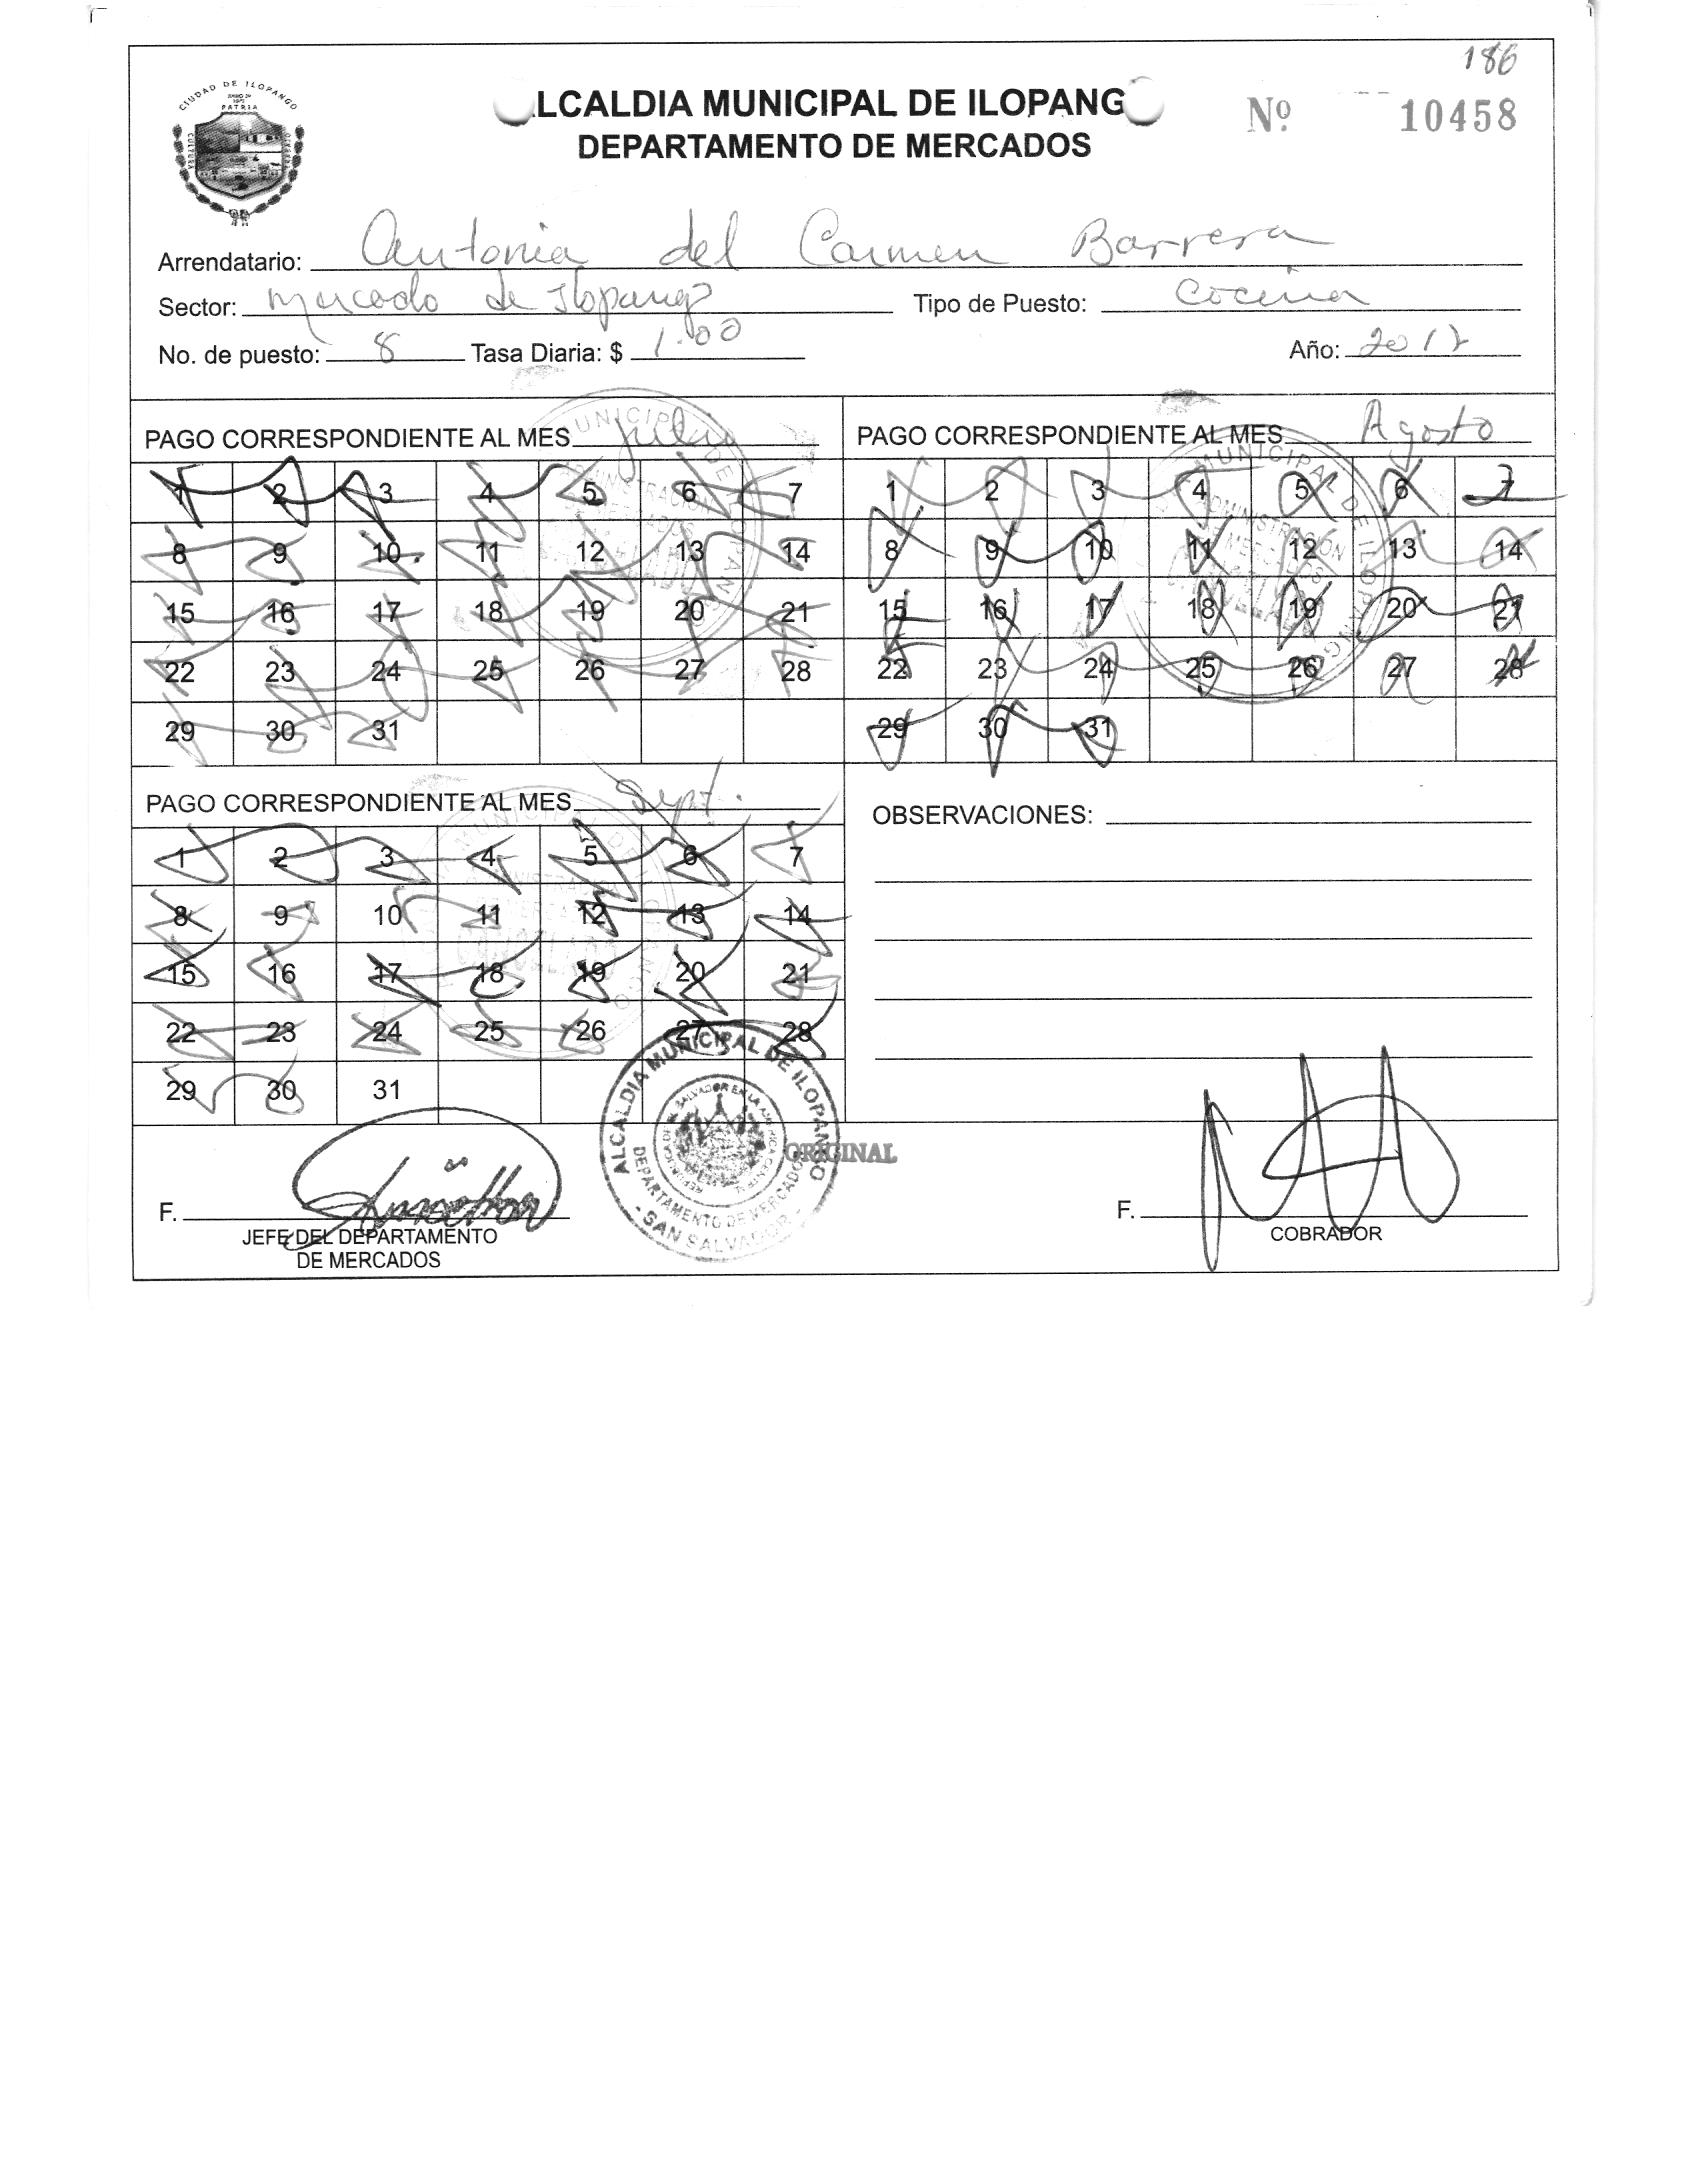 186
CIUDAD DE ILOPANGO
PATRIA
CULTURA
LCALDIA MUNICIPAL DE ILOPANG
DEPARTAMENTO DE MERCADOS
Nº 10458
Arrendatario: Antonia del Carmen Barrera
Sector: Mercado de Ilopango Tipo de Puesto: Cocina
No. de puesto: 8 Tasa Diaria: $ 1.00 Año: 2017
PAGO CORRESPONDIENTE AL MES Julio
1 2 3 4 5 6 7
8 9 10 11 12 13 14
15 16 17 18 19 20 21
22 23 24 25 26 27 28
29 30 31
PAGO CORRESPONDIENTE AL MES Agosto
1 2 3 4 5 6 7
8 9 10 11 12 13 14
15 16 17 18 19 20 21
22 23 24 25 26 27 28
29 30 31
PAGO CORRESPONDIENTE AL MES Sept.
1 2 3 4 5 6 7
8 9 10 11 12 13 14
15 16 17 18 19 20 21
22 23 24 25 26 27 28
29 30 31
OBSERVACIONES:
ALCALDIA MUNICIPAL DE ILOPANGO
DEPARTAMENTO DE MERCADOS
- SAN SALVADOR -
ORIGINAL
F.
JEFE DEL DEPARTAMENTO
DE MERCADOS
F.
COBRADOR